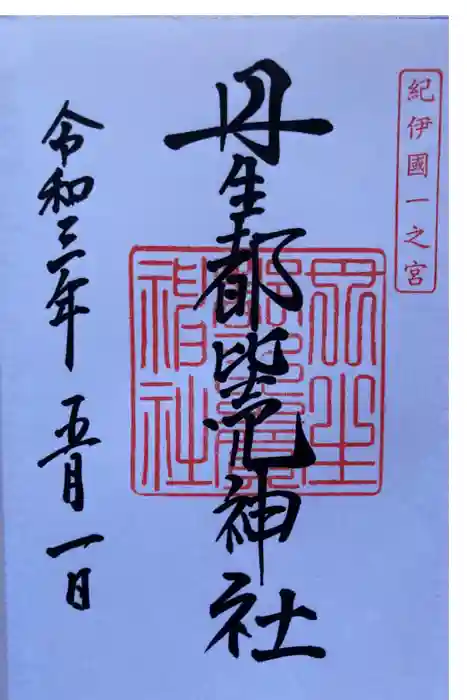 紀伊國一之宮
丹生都比売神社
丹生都比賣神社
令和三年 五月一日